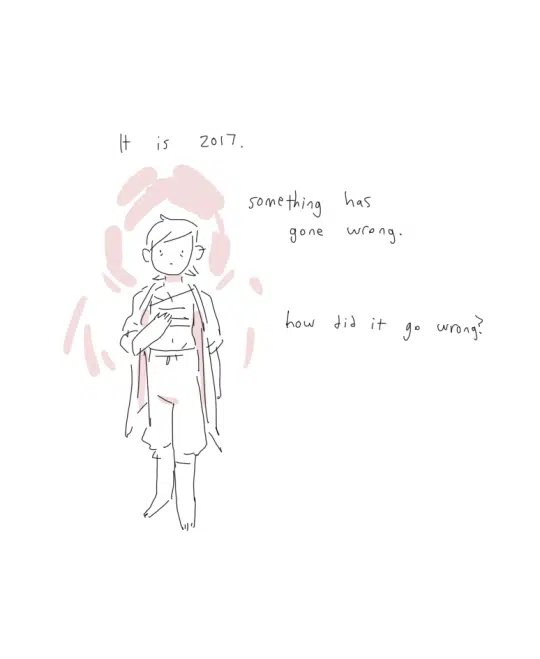 It is 2017.
something has
gone wrong.
how did it go wrong?